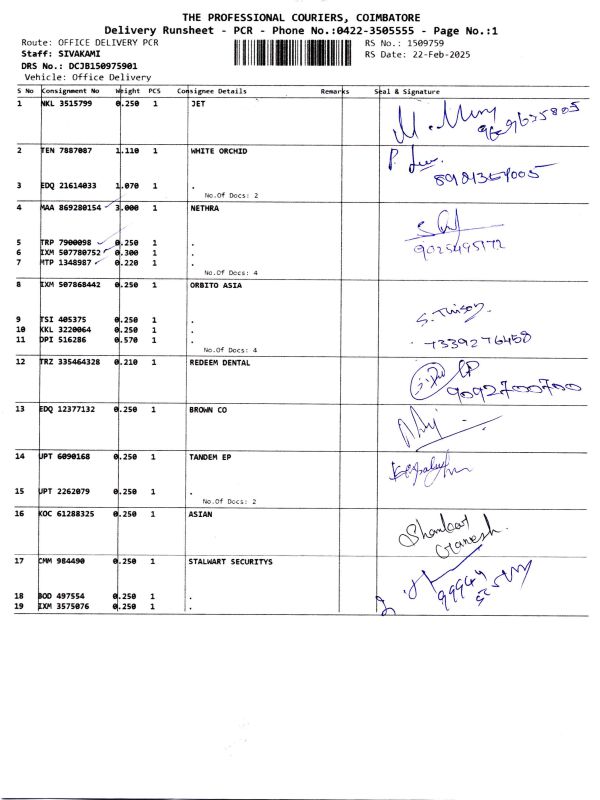 THE PROFESSIONAL COURIERS, COIMBATORE
Delivery Runsheet - PCR - Phone No.:0422-3505555 - Page No.:1
Route: OFFICE DELIVERY PCR RS No.: 1509759
Staff: SIVAKAMI RS Date: 22-Feb-2025
DRS No.: DCJB150975901
Vehicle: Office Delivery
S No Consignment No Weight PCS Consignee Details Remarks Seal & Signature
1 NKL 3515799 0.250 1 JET
2 TEN 7887087 1.110 1 WHITE ORCHID
3 EDQ 21614033 1.070 1 .
No.Of Docs: 2
4 MAA 869280154 3.000 1 NETHRA
5 TRP 7900098 0.250 1 .
9025495172
6 IXM 507780752 0.300 1 .
7 MTP 1348987 0.220 1 .
No.Of Docs: 4
8 IXM 507868442 0.250 1 ORBITO ASIA
9 TSI 405375 0.250 1 .
10 KKL 3220064 0.250 1 .
11 DPI 516286 0.570 1 .
7339276458
No.Of Docs: 4
12 TRZ 335464328 0.210 1 REDEEM DENTAL
9092700700
13 EDQ 12377132 0.250 1 BROWN CO
14 UPT 6090168 0.250 1 TANDEM EP
15 UPT 2262079 0.250 1 .
No.Of Docs: 2
16 KOC 61288325 0.250 1 ASIAN
Shankar
Ganesh.
17 CMM 984490 0.250 1 STALWART SECURITYS
18 BOD 497554 0.250 1 .
19 IXM 3575076 0.250 1 .